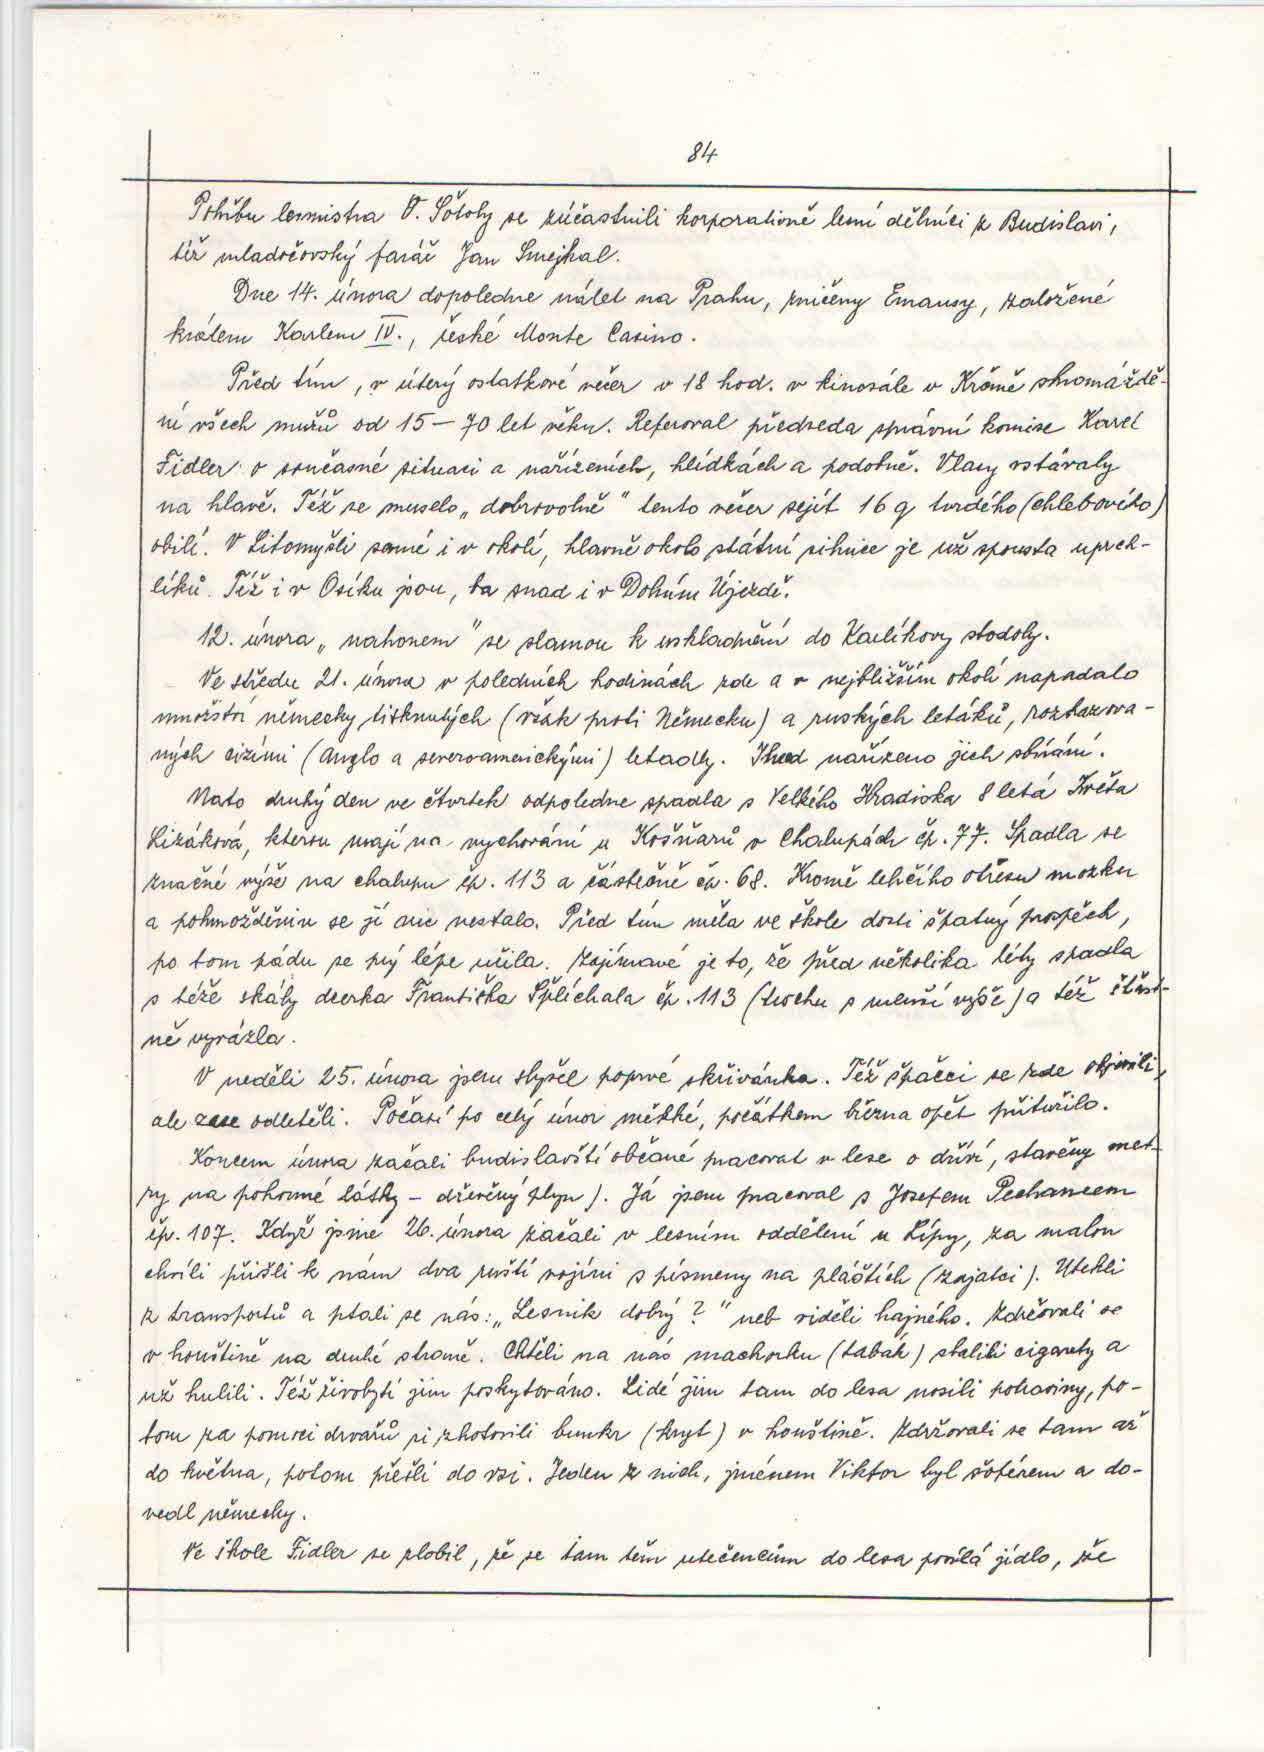 84
Pohřbu lesmistra V. Šotoly se zúčastnili korporativně lesní dělníci z Budislavi,
též mladočovský farář Jan Smejkal.
Dne 14. února dopoledne nálet na Prahu, zničeny Emausy, založené
králem Karlem IV., české Monte Casino.
Před tím, v úterý ostatkové večer v 18 hod. v kinosále v Krčmě shromáždě-
ní všech mužů od 15 – 70 let věku. Referoval předseda správní komise Karel
Fidler o současné situaci a nařízeních, hlídkách a podobně. Vlasy vstávaly
na hlavě. Též se muselo „dobrovolně" tento večer sejít 16 q tvrdého (chlebového)
obilí. V Litomyšli samé i v okolí, hlavně okolo státní silnice je už spousta uprch-
líků. Též i v Osíku jsou, ba snad i v Dolním Újezdě.
12. února „nahonem" se slamou k uskladnění do Kavlíkovy stodoly.
Ve středu 21. února v poledních hodinách zde a v nejbližším okolí napadalo
množství německy tisknutých (však proti Německu) a ruských letáků, rozhazova-
ných cizími (Anglo a severoamerickými) letadly. Ihned nařízeno jich sbírání.
Nato druhý den ve čtvrtek odpoledne spadla s Velkého Hradiska 8 letá Květa
Lizáková, kterou mají na vychování u Košňarů v Chalupách čp. 77. Spadla se
značné výše na chalupu čp. 113 a částečně čp. 68. Kromě lehčího otřesu mozku
a pohmoždění se jí nic nestalo. Před tím měla ve škole dosti špatný prospěch,
po tom pádu se prý lépe učila. Zajímavé je to, že před několika léty spadla
s téže skály dcerka Františka Šplíchala čp. 113 (trochu s menší výše) a též šťast-
ně vyvázla.
V neděli 25. února jsem slyšel poprvé skřivánka. Též špačci se zde objevili,
ale zase odletěli. Počasí po celý únor měkké, počátkem března opět přituřilo.
Koncem února začali budislavští občané pracovat v lese o dříví, stavěny met-
ry na pohonné látky – dřevěný plyn). Já jsem pracoval s Josefem Pechancem
čp. 107. Když jsme 26. února začali v lesním oddělení u Lípy, za malou
chvíli přišli k nám dva ruští vojíni s písmeny na pláštích (zajatci). Utekli
z transportů a ptali se nás: „Lesnik dobrý?" neb viděli hajného. Zdržovali se
v houštině na druhé straně. Chtěli na nás machorku (tabák) stočili cigarety a
už hulili. Též živobytí jim poskytováno. Lidé jim tam do lesa nosili potraviny, po-
tom za pomoci drvařů si zhotovili bunkr (kryt) v houštině. Zdržovali se tam až
do května, potom přešli do vsi. Jeden z nich, jménem Viktor byl šoférem a do-
vedl německy.
Ve škole Fidler se zlobil, že se tam těm utečencům do lesa posílá jídlo, že